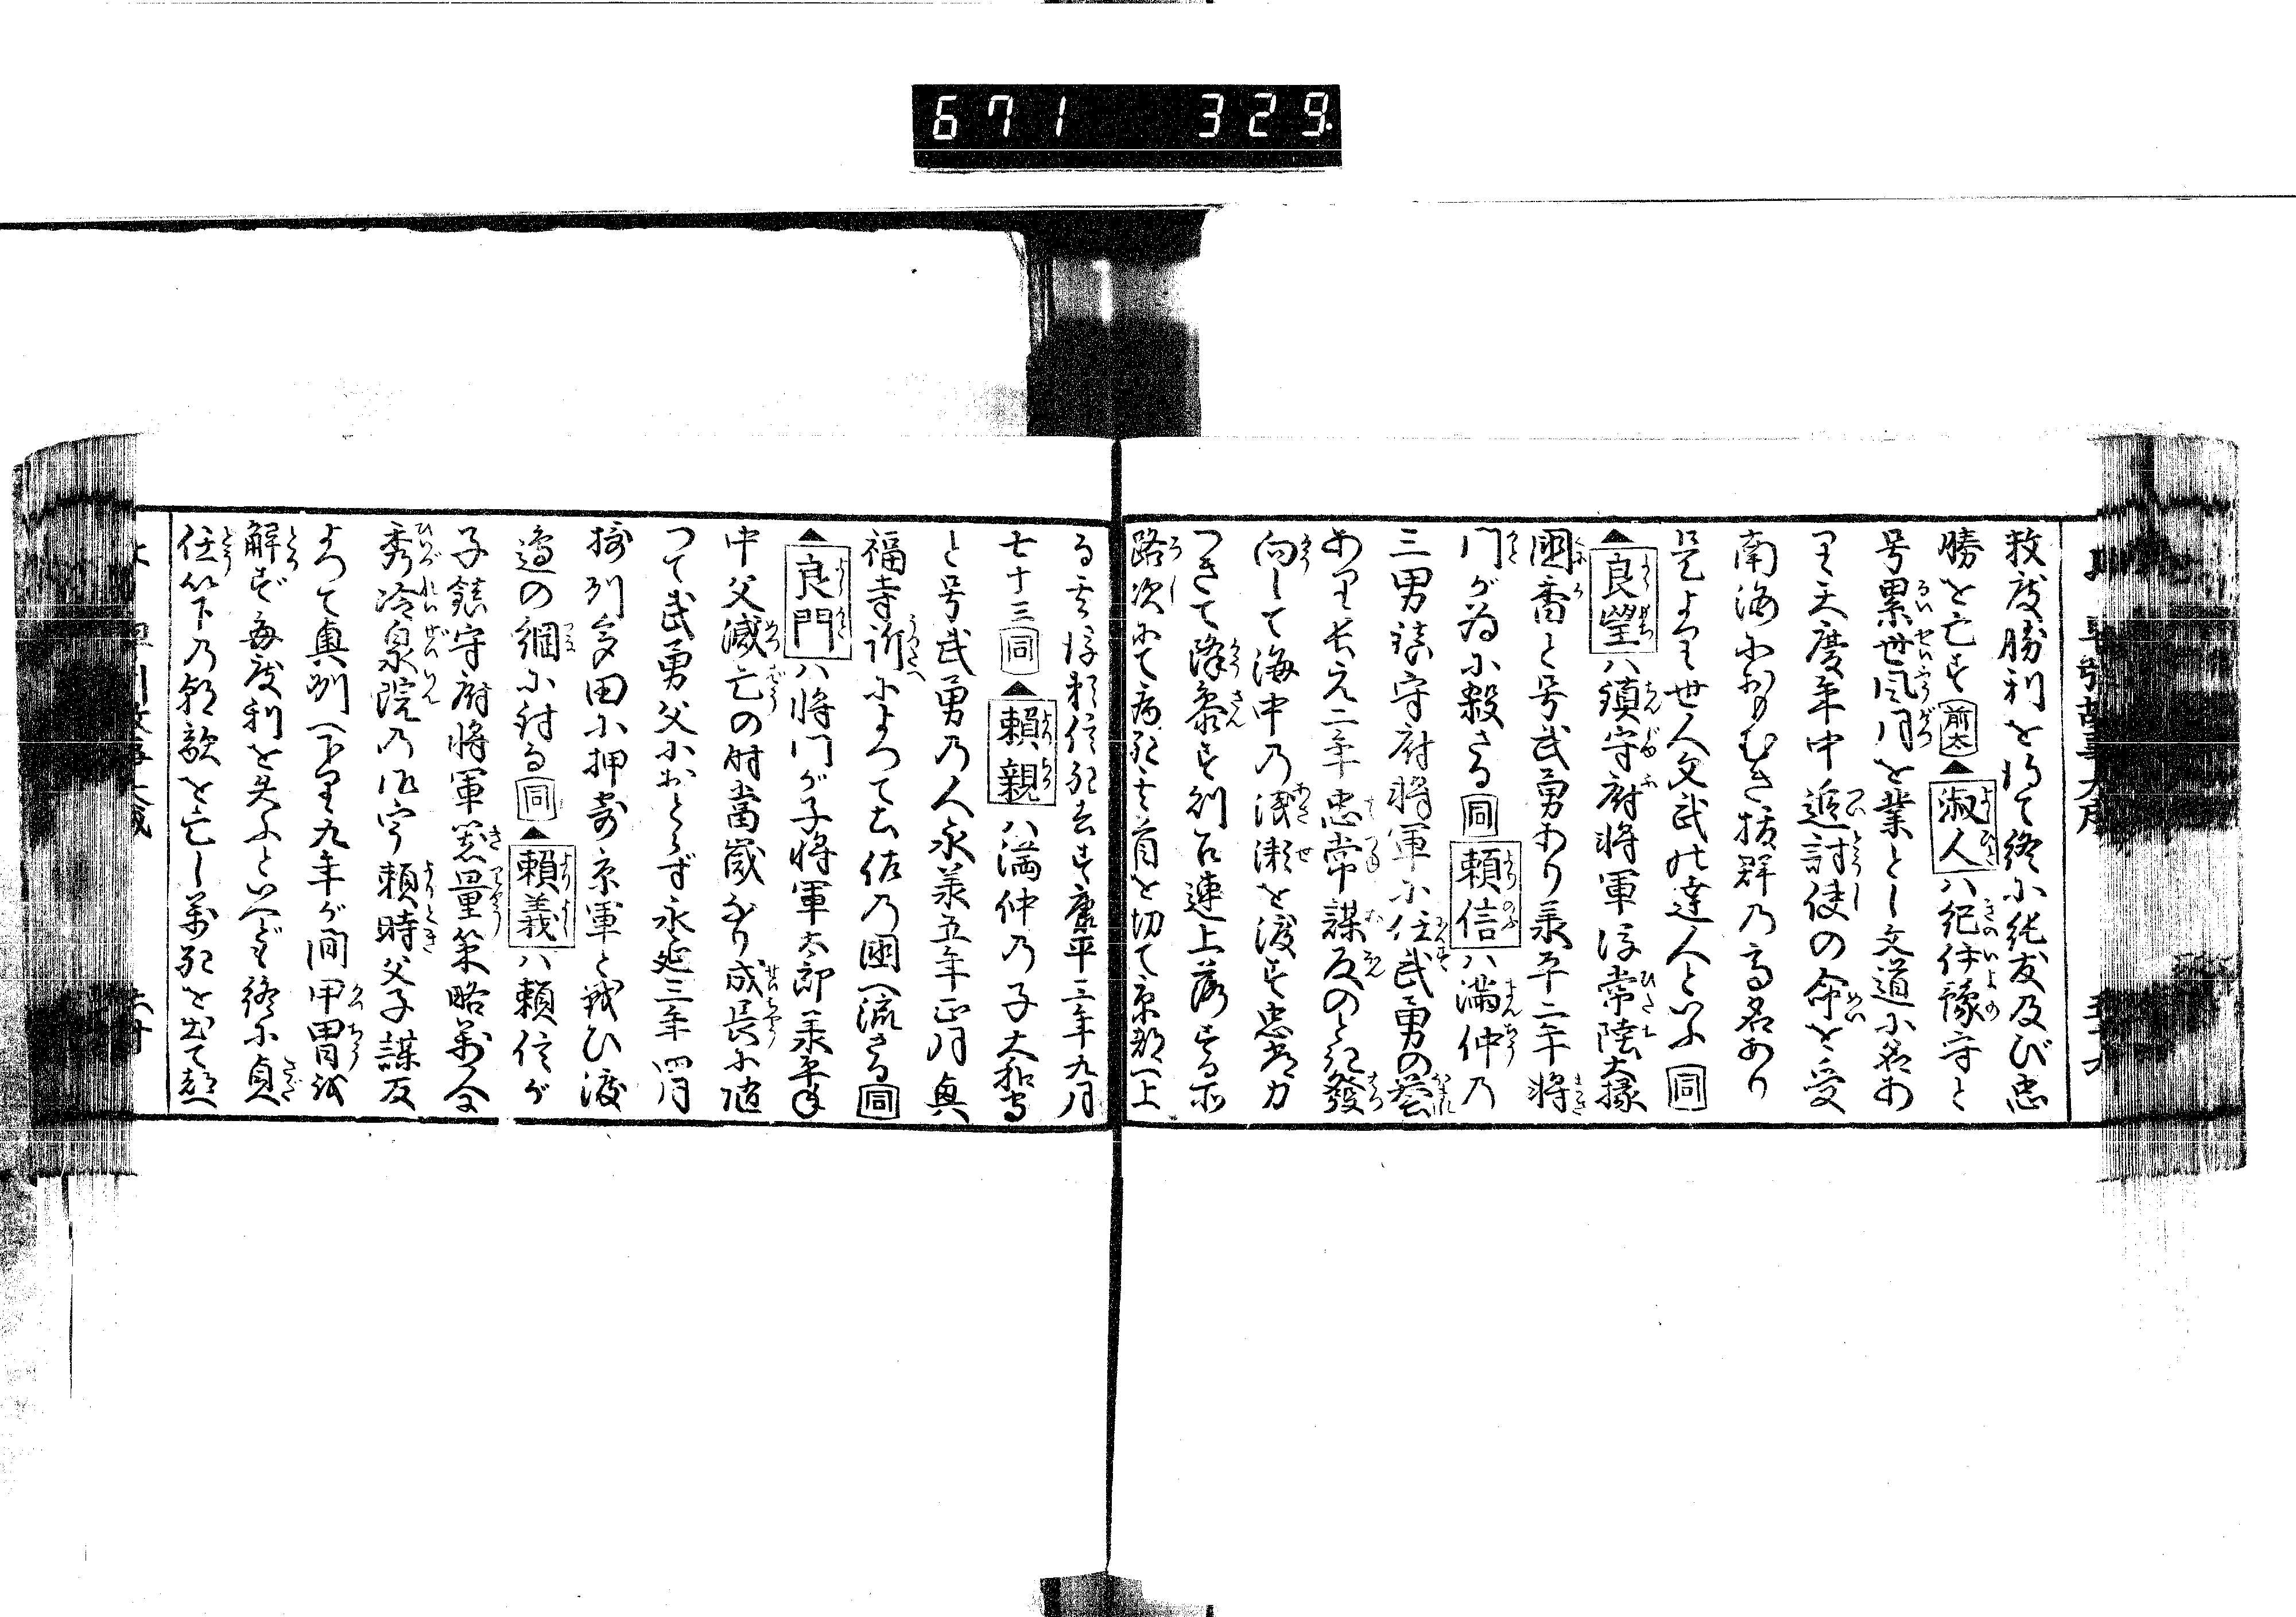 671 329
数度勝利を得て終に純友及び忠
勝を亡す 前太 ▲淑人ハ紀伊豫守と
号累世風月を業とし文道に名あ
り天慶年中追討使の命を受
南海におもむき抜群乃高名あり
是より世人文武の達人といふ 同
▲良望ハ鎮守府将軍後常陸大掾
國香と号武勇あり承平二年将
門が為に殺さる 同 頼信ハ満仲乃
三男鎮守府将軍に任武勇の誉
あり長元二年忠常謀反のとき發
向して海中乃浅瀬を渡す忠常力
つきて降参す則召連上洛する所
路次にて病死す首を切て京都へ上
る 其後頼信死去す康平三年九月
七十三 同 ▲頼親ハ満仲乃子大和守
と号武勇乃人永承五年正月興
福寺訴によつて土佐乃國へ流さる 同
▲良門ハ将門が子将軍太郎承平年
中父滅亡の时當歳なり成長に随
つて武勇父におとらず永延三年四月
摂州多田に押寄京軍と戦ひ渡
邉の綱に討る 同 ▲頼義ハ頼信が
子鎮守府将軍器量策略兼全
秀冷泉院乃御宇頼時父子謀反
よつて奥州へ下り九年が間甲冑を
解ず毎度利を失ふといへども終に貞
任以下乃朝敵を亡し萬死を出て趣